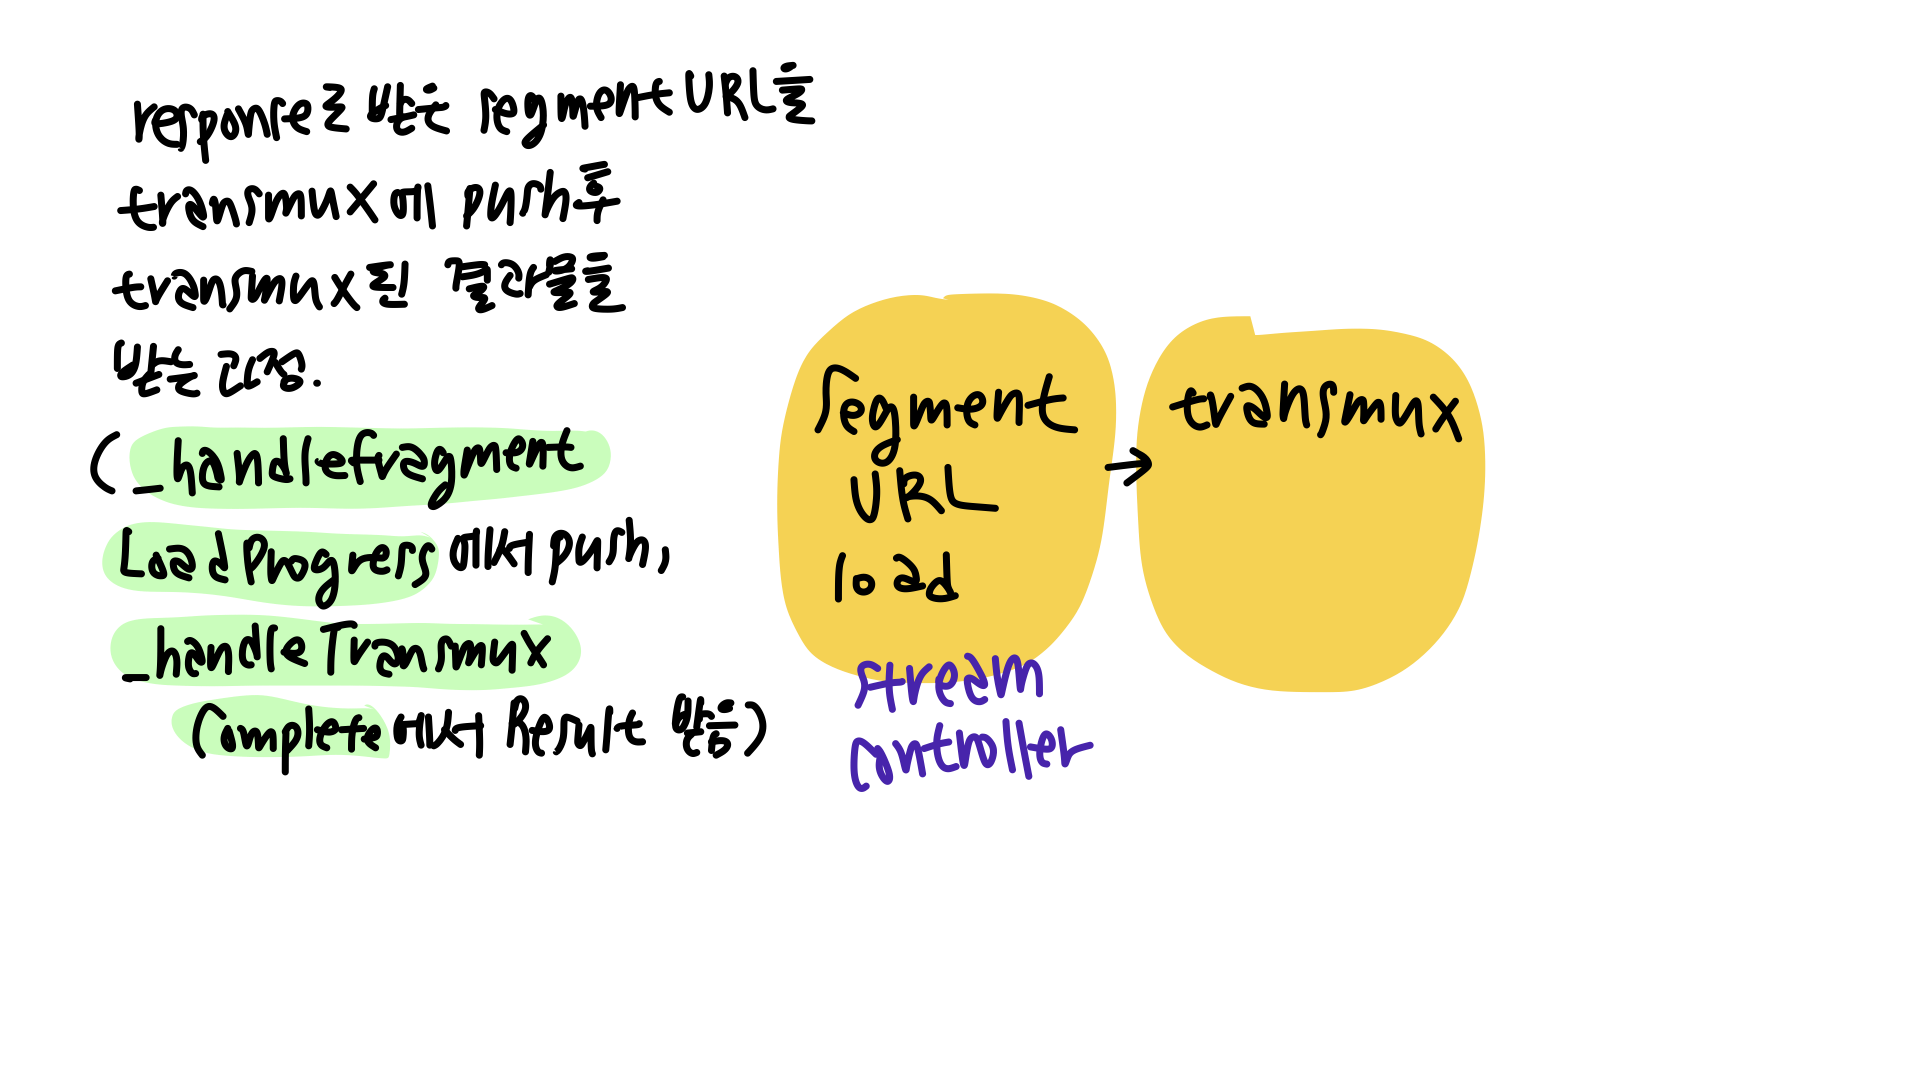 response로 받은 segment URL을
transmux에 push후
transmux된 결과물을
받는 과정.
(_handlefragment
LoadProgress에서 push,
_handleTransmux
Complete에서 Result 받음)
segment
URL
load
stream
controller
transmux